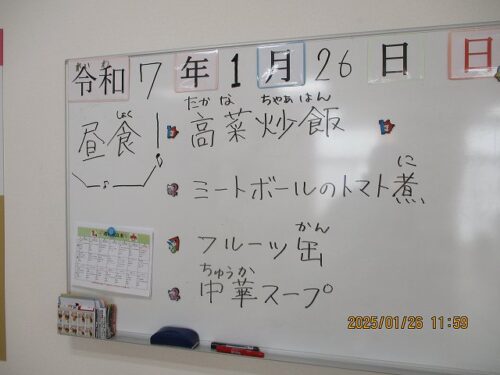 れいわ
令和7年1月26日 日
しょく
昼食
たかな ちゃあはん
高菜炒飯
に
ミートボールのトマト煮
かん
フルーツ缶
ちゅうか
中華スープ
2025/01/26 11:59